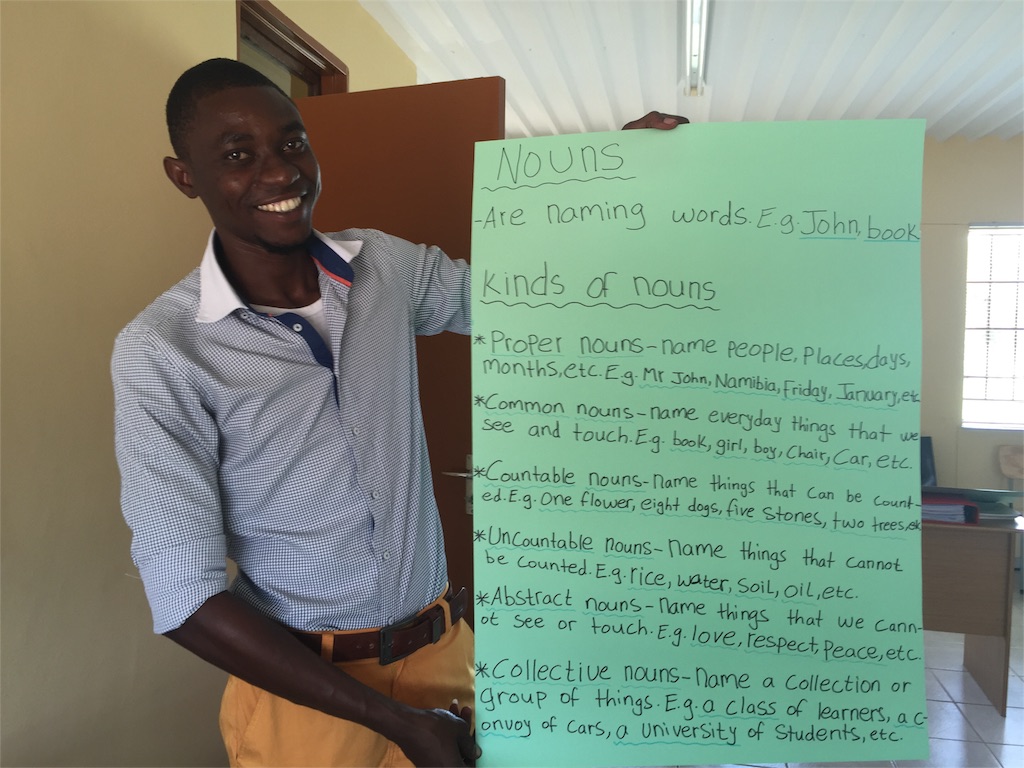 Nouns
-Are naming words. E.g. John, book
Kinds of nouns
* Proper nouns - name people, places, days,
months, etc. E.g. Mr John, Namibia, Friday, January, etc
* Common nouns - name everyday things that we
see and touch. E.g. book, girl, boy, Chair, Car, etc.
* Countable nouns - name things that can be count-
ed. E.g. One flower, eight dogs, five stones, two trees, etc
* Uncountable nouns - name things that cannot
be counted. E.g. rice, water, soil, oil, etc.
* Abstract nouns - name things that we cann-
ot see or touch. E.g. love, respect, peace, etc.
* Collective nouns - name a collection or
group of things. E.g. a class of learners, a c-
onvoy of cars, a University of students, etc.